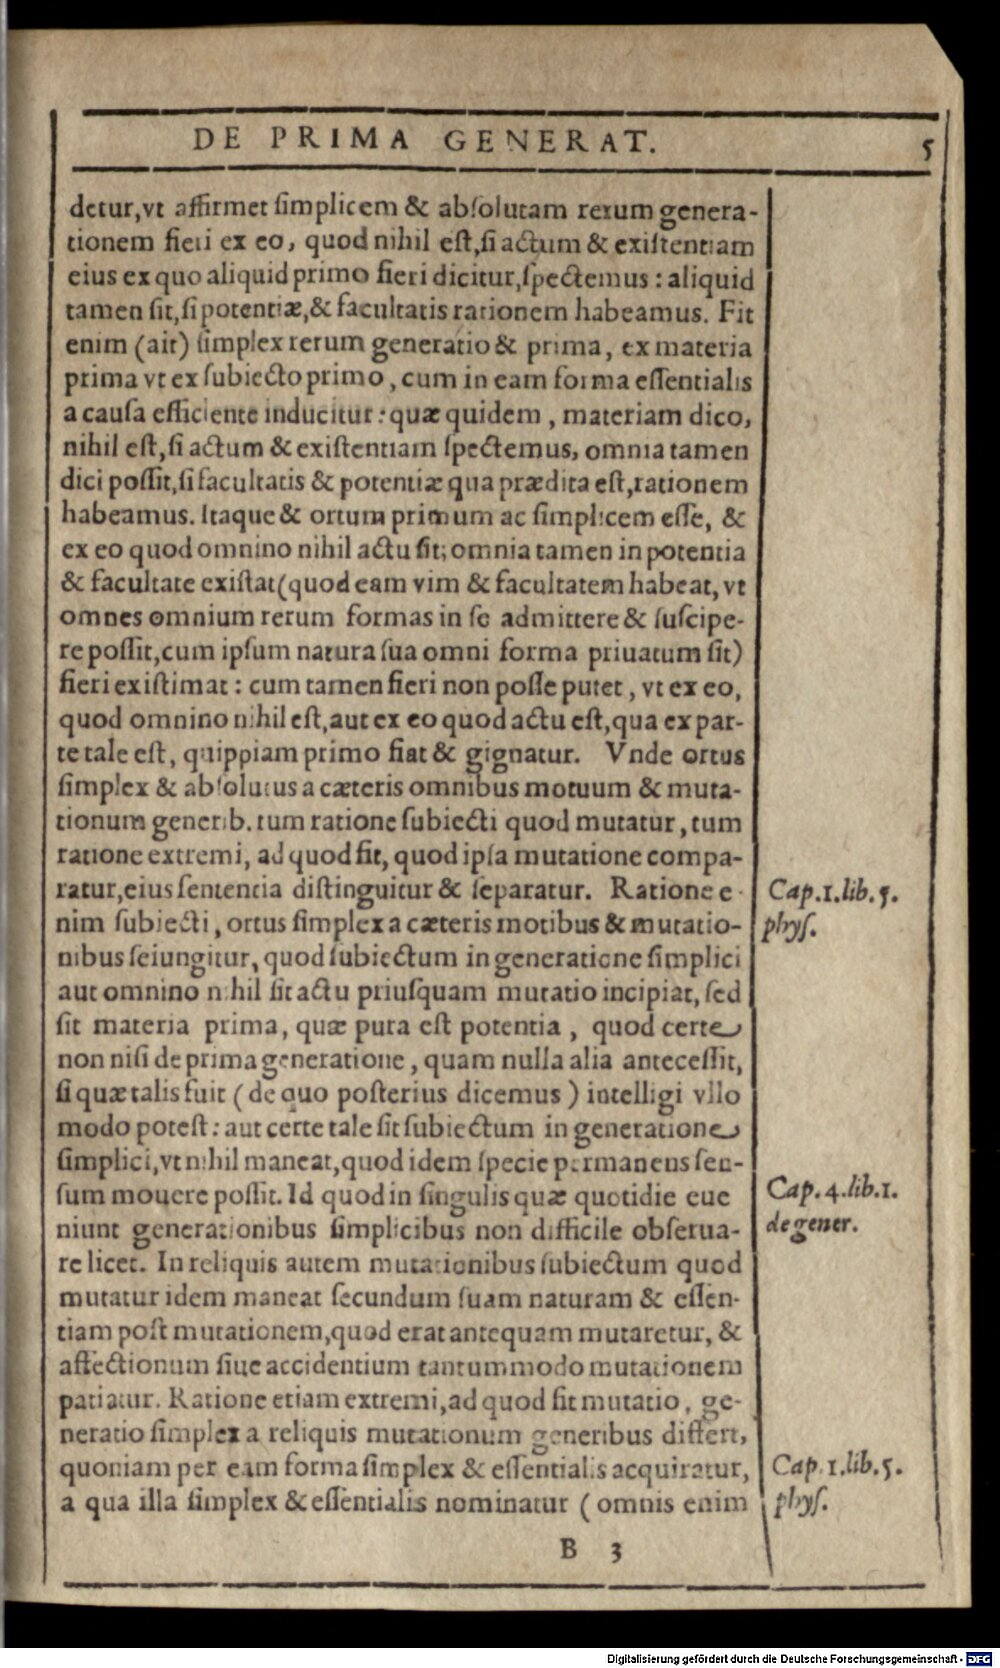 DE PRIMA GENERAT. 5
detur,vt affirmet ſimplicem & abſolutam rerum genera-
tionem fieri ex eo, quod nihil eſt,ſi actum & exiſtentiam
eius ex quo aliquid primo fieri dicitur,ſpectemus : aliquid
tamen ſit,ſi potentiæ,& facultatis rationem habeamus. Fit
enim (ait) ſimplex rerum generatio & prima, ex materia
prima vt ex ſubiecto primo, cum in eam forma eſſentialis
a cauſa efficiente inducitur: quæ quidem, materiam dico,
nihil eſt,ſi actum & exiſtentiam ſpectemus, omnia tamen
dici poſſit,ſi facultatis & potentiæ qua prædita eſt,rationem
habeamus. Itaque & ortum primum ac ſimplicem eſſe, &
ex eo quod omnino nihil actu ſit; omnia tamen in potentia
& facultate exiſtat (quod eam vim & facultatem habeat, vt
omnes omnium rerum formas in ſe admittere & ſuſcipe-
re poſſit,cum ipſum natura ſua omni forma priuatum ſit)
fieri exiſtimat : cum tamen fieri non poſſe putet, vt ex eo,
quod omnino nihil eſt,aut ex eo quod actu eſt,qua ex par-
te tale eſt, quippiam primo fiat & gignatur. Vnde ortus
ſimplex & abſolutus a cæteris omnibus motuum & muta-
tionum generib. tum ratione ſubiecti quod mutatur, tum
ratione extremi, ad quod fit, quod ipſa mutatione compa-
ratur,eius ſententia diſtinguitur & ſeparatur. Ratione e-
Cap.1.lib.5.
nim ſubiecti, ortus ſimplex a cæteris motibus & mutatio-
phyſ.
nibus ſeiungitur, quod ſubiectum in generatione ſimplici
aut omnino nihil ſit actu priuſquam mutatio incipiat, ſed
ſit materia prima, quæ pura eſt potentia, quod certe
non niſi de prima generatione, quam nulla alia anteceſſit,
ſi quæ talis fuit (de quo poſterius dicemus) intelligi vllo
modo poteſt : aut certe tale ſit ſubiectum in generatione
ſimplici,vt nihil maneat,quod idem ſpecie permanens ſen-
ſum mouere poſſit. Id quod in ſingulis quæ quotidie eue
Cap.4.lib.1.
niunt generationibus ſimplicibus non difficile obſerua-
de gener.
re licet. In reliquis autem mutationibus ſubiectum quod
mutatur idem maneat ſecundum ſuam naturam & eſſen-
tiam poſt mutationem,quod erat antequam mutaretur, &
affectionum ſiue accidentium tantummodo mutationem
patiatur. Ratione etiam extremi,ad quod fit mutatio, ge-
neratio ſimplex a reliquis mutationum generibus differt,
quoniam per eam forma ſimplex & eſſentialis acquiratur,
Cap.1.lib.5.
a qua illa ſimplex & eſſentialis nominatur (omnis enim
phyſ.
B 3
Digitalisierung gefördert durch die Deutsche Forschungsgemeinschaft - DFG